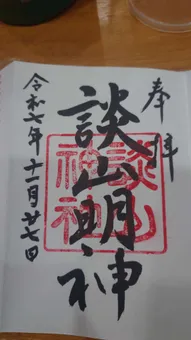 奉拝
談山明神
談山神社
令和七年十一月廿七日